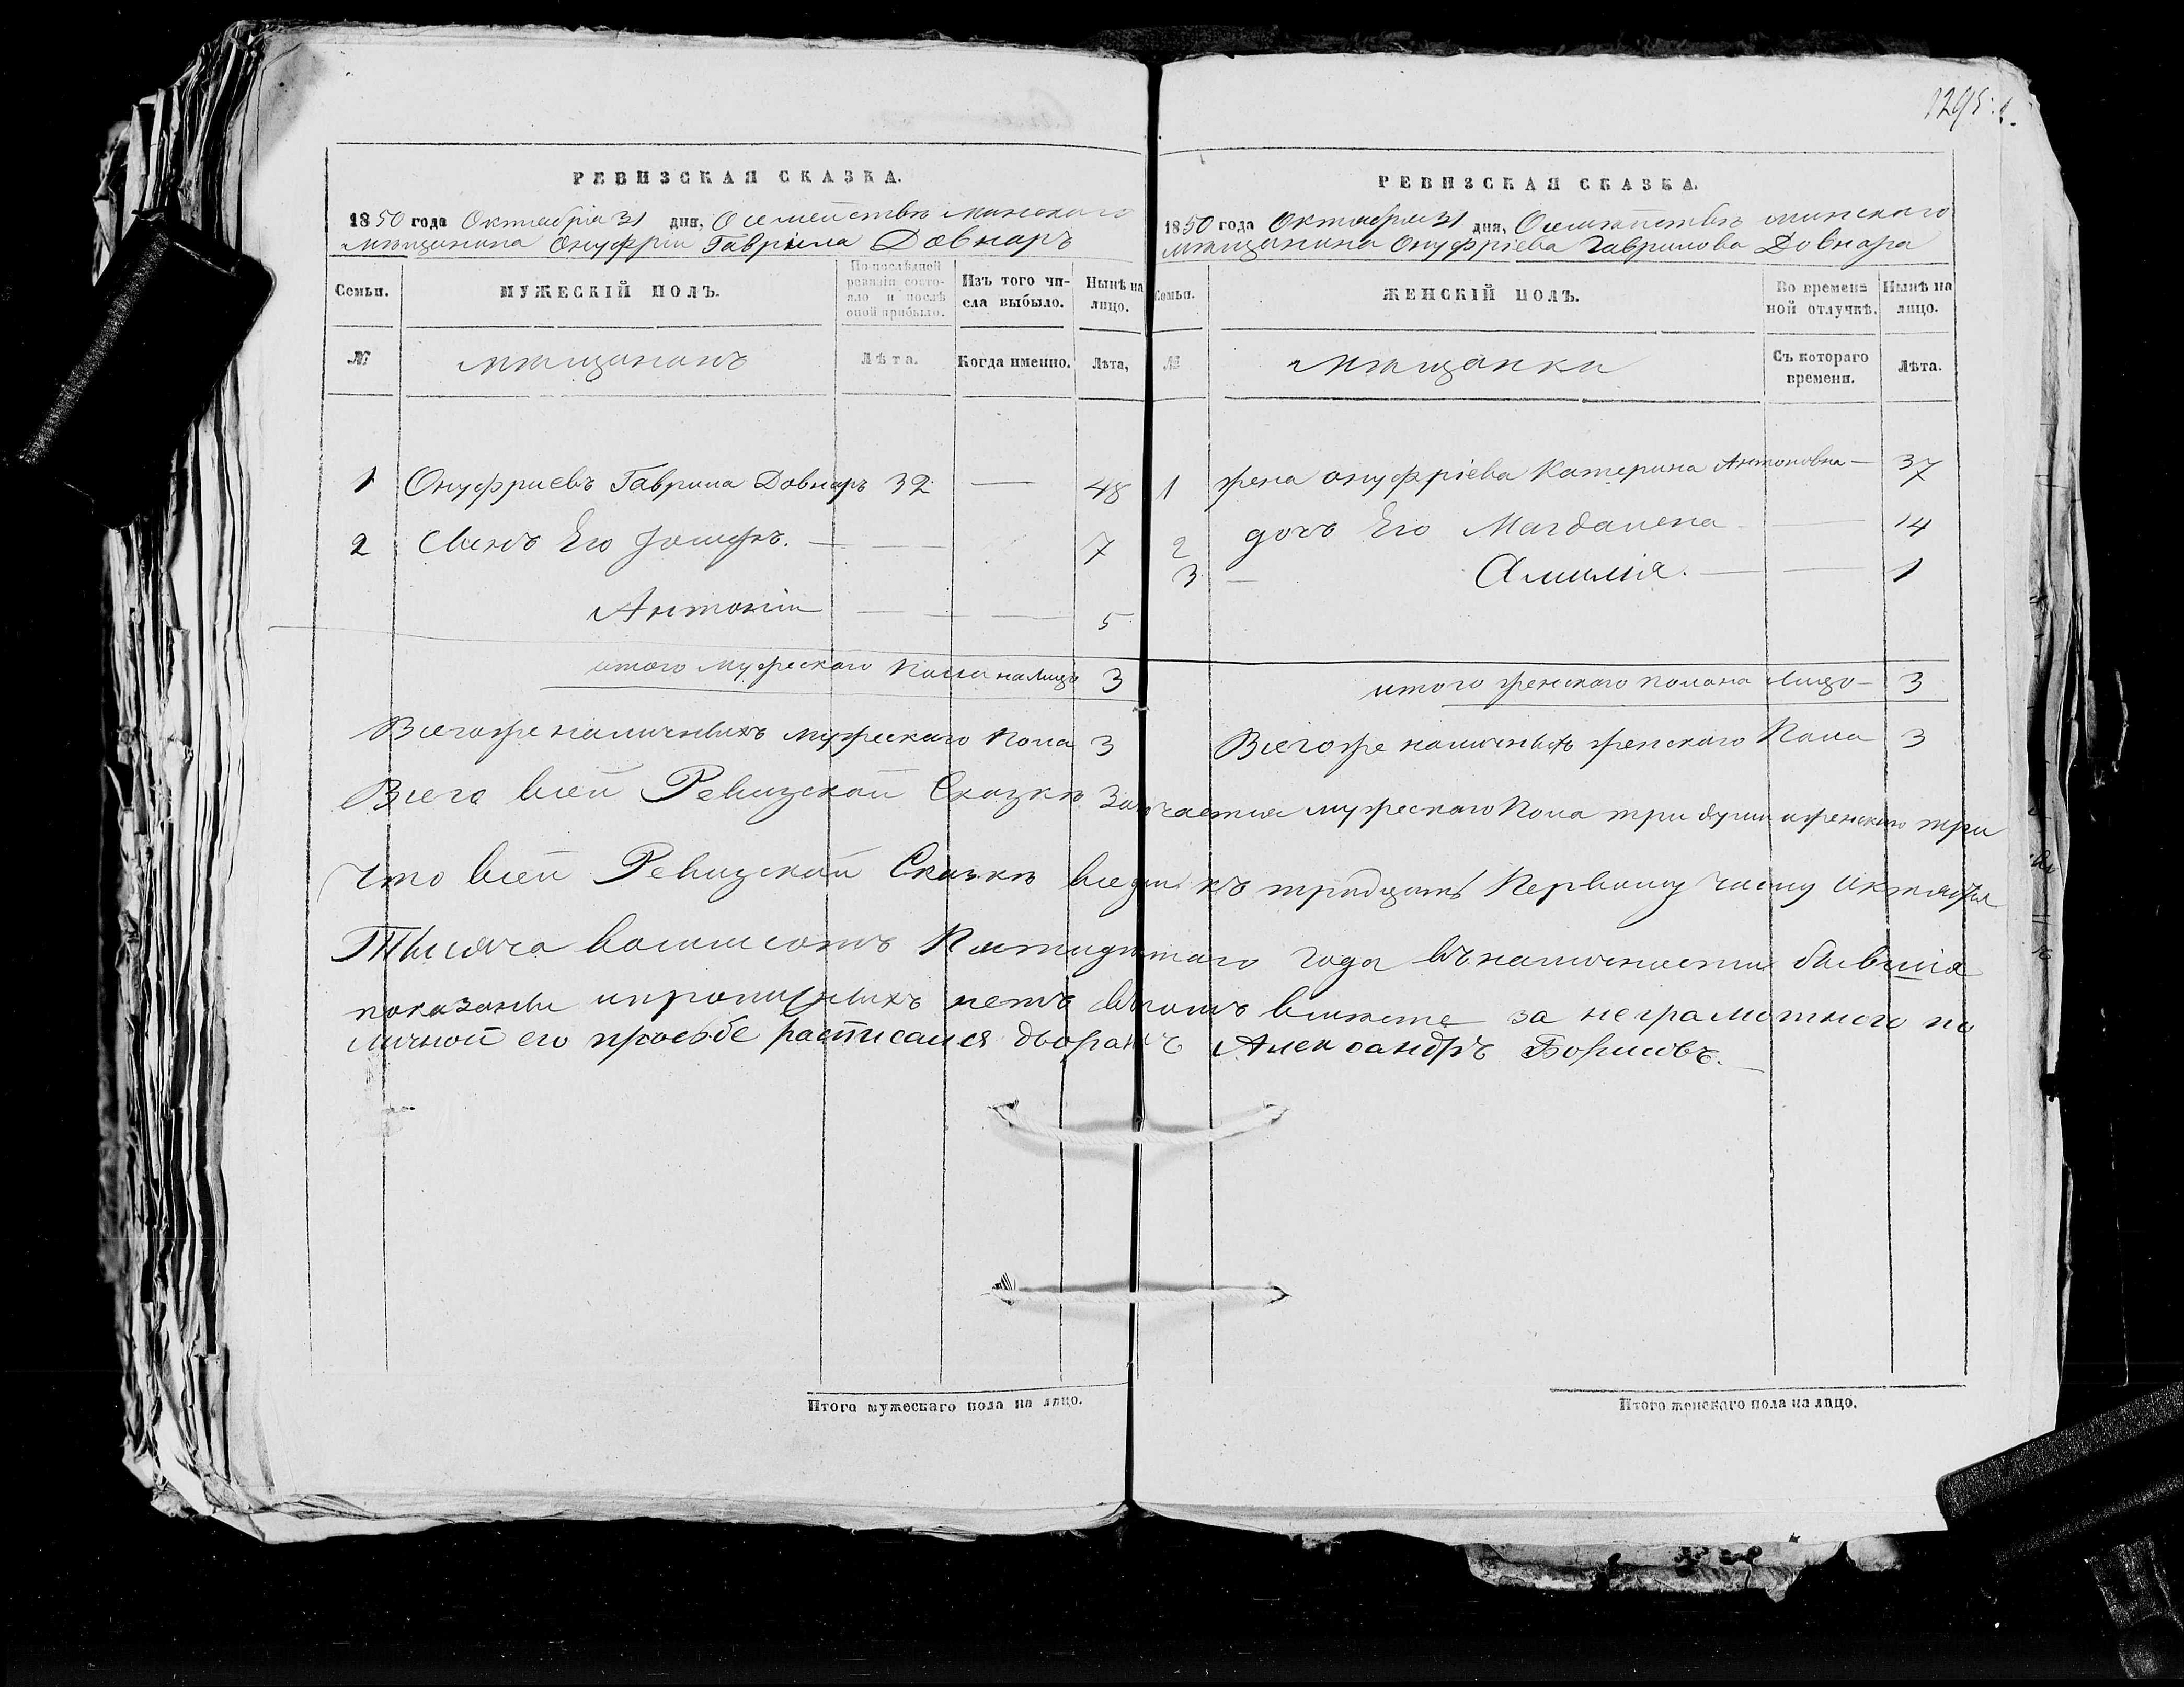 1295.
РЕВИЗСКАЯ СКАЗКА.
1850 года Октября 31 дня, О семействе минскаго
мещанина Онуфрия Гаврила Довнаръ
Семьи. МУЖЕСКІЙ ПОЛЪ. По послѣдней ревизіи состояло и послѣ оной прибыло. Изъ того числа выбыло. Нынѣ на лицо.
№ мещананъ Лѣта. Когда именно. Лѣта,
1 Онуфриевъ Гаврила Довнаръ 32 — 48
2 Сынъ Его Іосифъ. — — 7
Антоній — — 5
итого мужескаго пола налицо 3
Всегоже наличныхъ мужескаго пола 3
РЕВИЗСКАЯ СКАЗКА.
1850 года Октября 31 дня, О семействе минскаго
мещанина Онуфріева Гаврилова Довнара
Семьи. ЖЕНСКІЙ ПОЛЪ. Во временной отлучкѣ. Нынѣ на лицо.
№ мещанки Съ котораго времени. Лѣта.
1 жена онуфріева Катерина Антоновна — 37
2 дочь Его Магдалена — 14
3 — Амилія. — — 1
итого женскаго пола на Лицо — 3
Всегоже наличныхъ женскаго Пола 3
Всего всей Ревизской Сказке мужескаго Пола три души иженскаго три
Что всей Ревизской Сказке все къ тридцать Первому числу Октября
Тысяча восимсотъ Пятидесятаго года въналичности бывшия
показаны ипрописныхъ нетъ вчомъ за неграмотного по
личной его прозьбе расписался дворанъ Александръ Борисовъ.
Итого мужескаго пола на лицо.
Итого женскаго пола на лицо.